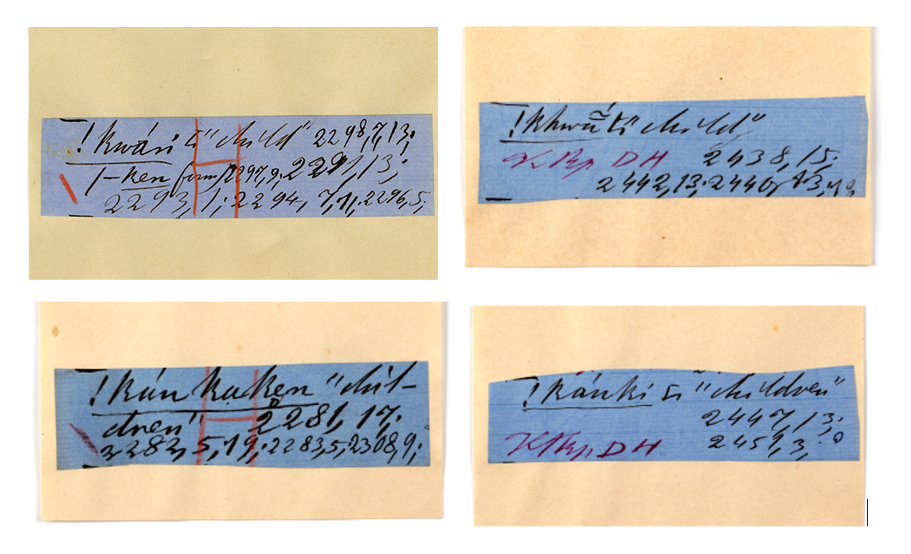 !kwási "child" 2298,7,13;
/-ken form/ 2297,9; 2291,13;
2293,1; 2294, 7,11; 2296,5;
!khwā "child"
DH 2438,15;
2442,13; 2440,
!kán kaken "chil-
dren" 2281,17;
2282,5,19; 2283,5; 2308,9;
!kánki "children"
2447,13;
DH 2459,3;